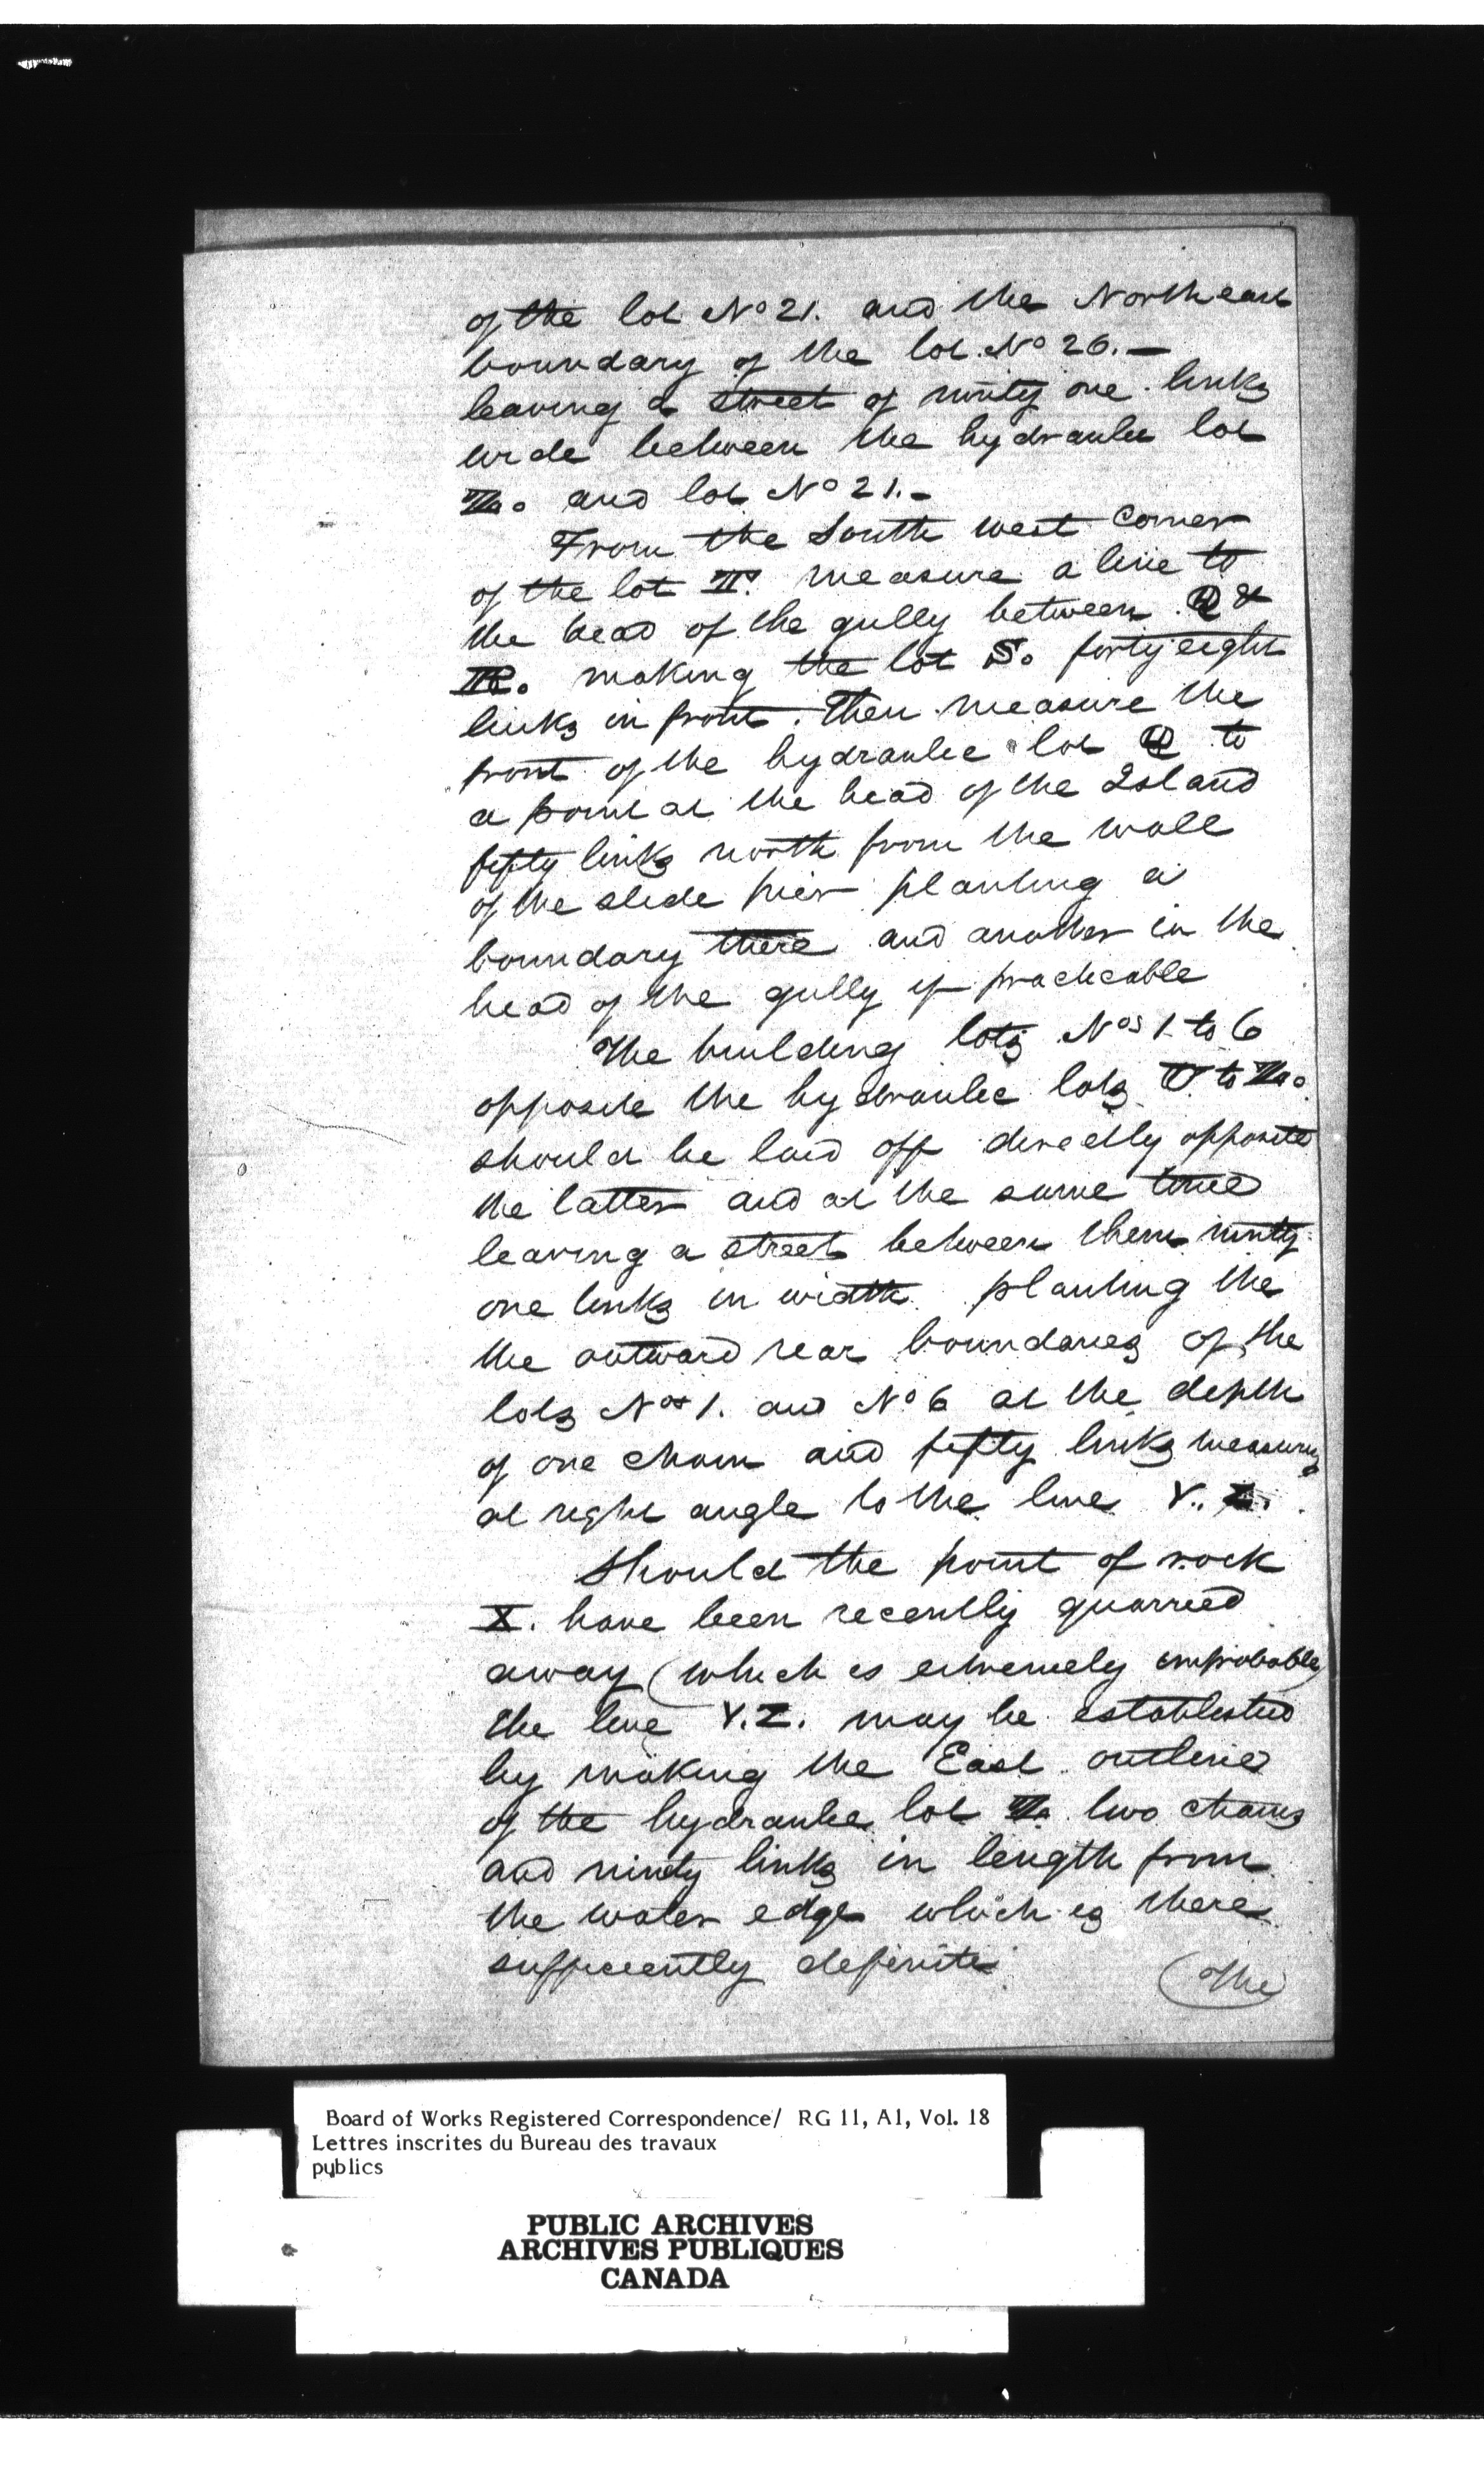 of the lot No 21. and the North east
boundary of the lot No 26.—
leaving a street of ninty one links
wide between the hydraulic lot
and lot No 21.–
From the South west corner
of the lot T. measure a line to
the head of the gully between Q &
R. making the lot S. forty eight
links in front. Then measure the
front of the hydraulic lot Q to
a point at the head of the Island
fifty links north from the wall
of the slide pier planting a
boundary there and another in the
head of the gully if practicable
The building lots Nos 1 to 6
opposite the hydraulic lots to
should be laid off directly opposite
the latter and at the same time
leaving a street between them ninty
one links in width planting the
the outward rear boundaries of the
lots Nos 1. and No 6 at the depth
of one chain and fifty links measuring
at right angle to the line Y.. Z.
Should the point of rock
X. have been recently quarried
away (which is extremely improbable)
the line Y.Z. may be established
by making the East outline
of the hydraulic lot two chains
and ninety links in length from
the water edge which is there
sufficiently definite
(The)
Board of Works Registered Correspondence/ RG 11, A1, Vol. 18
Lettres inscrites du Bureau des travaux
publics
PUBLIC ARCHIVES
ARCHIVES PUBLIQUES
CANADA